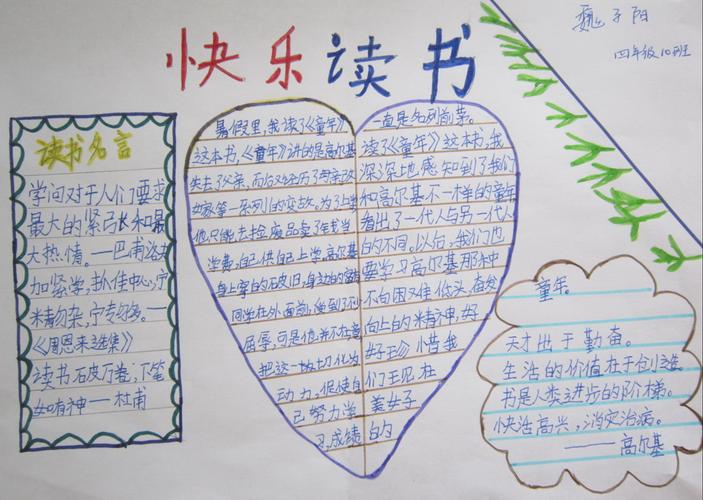 快乐读书
魏子阳
四年级10班
读书名言
学问对于人们要求
最大的紧张和最
大热情。—巴甫洛夫
加紧学,抓住中心,宁
精勿杂,宁专勿多。—
《周恩来选集》
读书破万卷,下笔
如有神——杜甫
暑假里,我读了《童年》
这本书,《童年》讲的是高尔基
失去了父亲,而后又经历了母亲改
嫁等一系列的变故,为了上学
他只能去捡废品卖了钱当
学费,自己供自己上学,高尔基
身上穿的破旧,身边的富有
同学在外面前,受到了不
屈辱,可是他并不在意
把这一切化为
动力,促使自
己努力学
习,成绩
一直是名列前茅。
读了《童年》这本书,我
深深地感知到了我们
和高尔基不一样的童年
看出了一代人与另一代人
的不同。以后,我们也
要学习高尔基那种
不向困难低头,奋发
向上的精神,好
好珍惜我
们现在
美好
的
童年。
天才出于勤奋。
生活的价值在于创造。
书是人类进步的阶梯。
快活高兴,消灾治病。
——高尔基